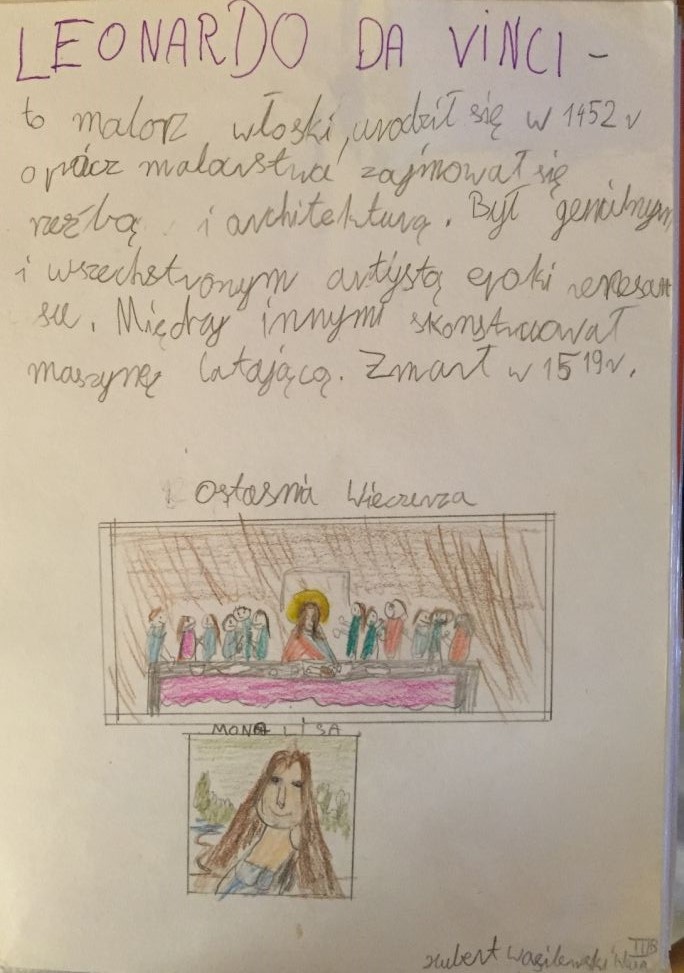 LEONARDO DA VINCI -
to malorz włoski, urodził się w 1452 r
oprócz malarstwa zajmował się
rzeźbą i architekturą. Był genialnym
i wszechstronnym artystą epoki renesan
su. Między innymi skonstruował
maszynę latającą. Zmarł w 1519 r.
Ostasnia Wieczerza
MONA LISA
III B
Hubert Wasilewski